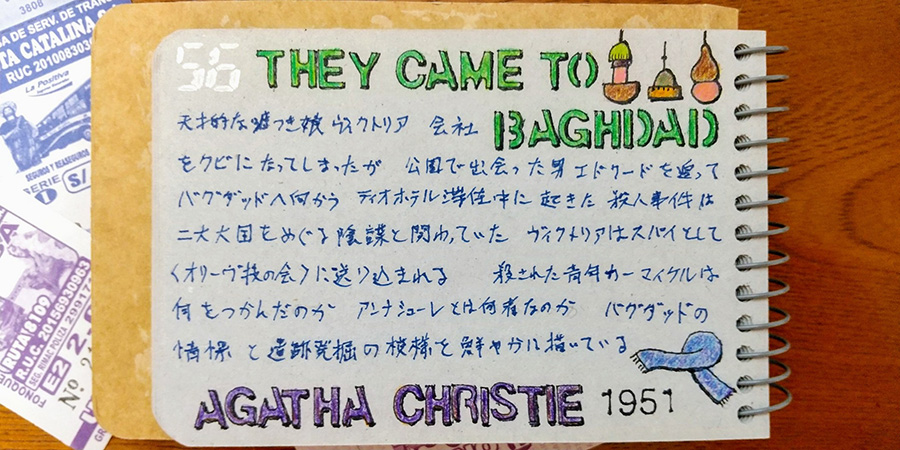 3808
A DE SERV. DE TRANS
TA CATALINA
La Positiva
SERIE
S/.
RUTA 8109
56
THEY CAME TO
BAGHDAD
天才的な嘘つき娘 ヴィクトリア 会社
をクビになってしまったが 公園で出会った男エドワードを追って
バグダッドへ何かう ティオホテル滞在中に起きた 殺人事件は
二大大国をめぐる陰謀と関わっていた ヴィクトリアはスパイとして
〈オリーヴ枝の会〉に送り込まれる 殺された青年カーマイケルは
何をつかんだのか アンナシェーレとは何者なのか バグダッドの
と遺跡発掘の模様を鮮やかに描いている
AGATHA CHRISTIE 1951